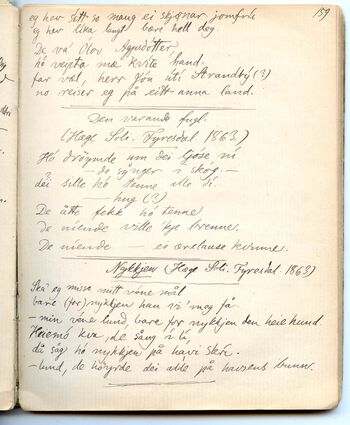 159
eg hev sett so mang ei skjønar jomfrú
og hev lika langt bore heli deg.
De va' Olov Agusdotter,
hó veipta mæ kvite hand.
far væl, herr Jón úti Strandbý (?)
no reiser eg på eitt anna land.
Den varande fugl.
(Hæge Soli. Fyresdal 1863.)
Hó drøymde um dei ljóse, ni
— do sýnger i skog. —
dei sille hó tenne ulo di
— hug (?)
De åtte fekk hó tenne
De niende ville kje brenne.
De niende — ei ærelause kvinne.
Nykkjen (Hæge Soli. Fyresdal. 1863)
Ska eg missa mitt vene mål
bare (for) nykkjen han vi' meg få
— min vene lund, bare for nykkjen den heie hund
Heiemó kvæ, de sång i lí,
då såg hó nykkjen på havi skrí.
— lund, de høyrde dei adde på havsens bunn.